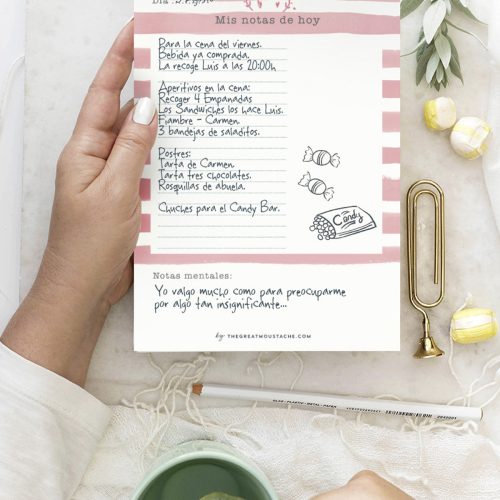 Mis notas de hoy
Para la cena del viernes.
Bebida ya comprada.
La recoge Luis a las 20:00h
Aperitivos en la cena:
Recoger 4 Empanadas
Los Sandwiches los hace Luis.
Fiambre - Carmen.
3 bandejas de saladitos.
Postres:
Tarta de Carmen.
Tarta tres chocolates.
Rosquillas de abuela.
Chuches para el Candy Bar.
Candy
Notas mentales:
Yo valgo mucho como para preocuparme
por algo tan insignificante...
by THEGREATMOUSTACHE.COM